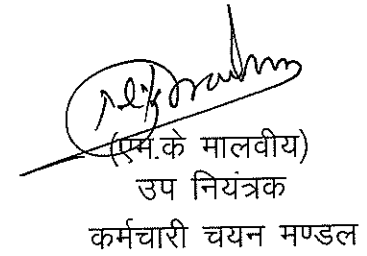 (एम.के मालवीय)
उप नियंत्रक
कर्मचारी चयन मण्डल